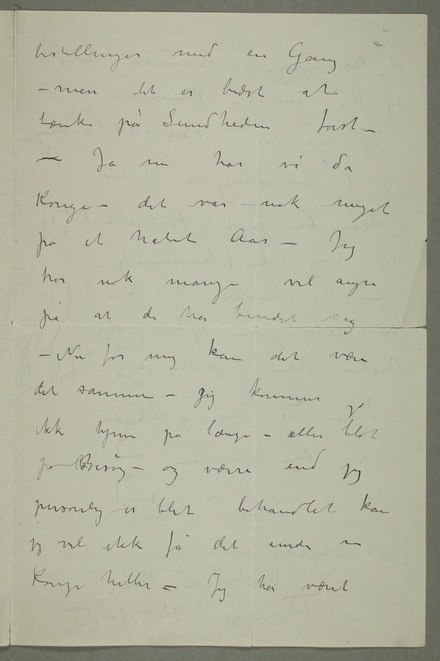 bestillinger med en Gang
– men det er bedst at
tænke på Sundheden først –
– Ja nu har vi da
Konge – det var nok meget
på et halvt Aar – Jeg
tror nok mange vil angre
på at de har bundet sig
– Nu for mig kan det være
det samme – jeg kommer
ikk hjem på længe – eller blot
på Besøg – og værre end jeg
personlig er blet behandlet kan
jeg vel ikke få det under en
Konge heller – Jeg har været